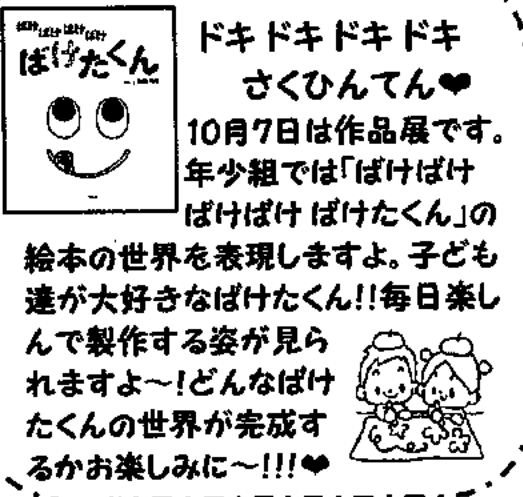 ばけばけばけばけ
ばけたくん
ドキドキドキドキ
さくひんてん❤
10月7日は作品展です。
年少組では「ばけばけ
ばけばけ ばけたくん」の
絵本の世界を表現しますよ。子ども
達が大好きなばけたくん!!毎日楽し
んで製作する姿が見ら
れますよ～!どんなばけ
たくんの世界が完成す
るかお楽しみに～!!!❤